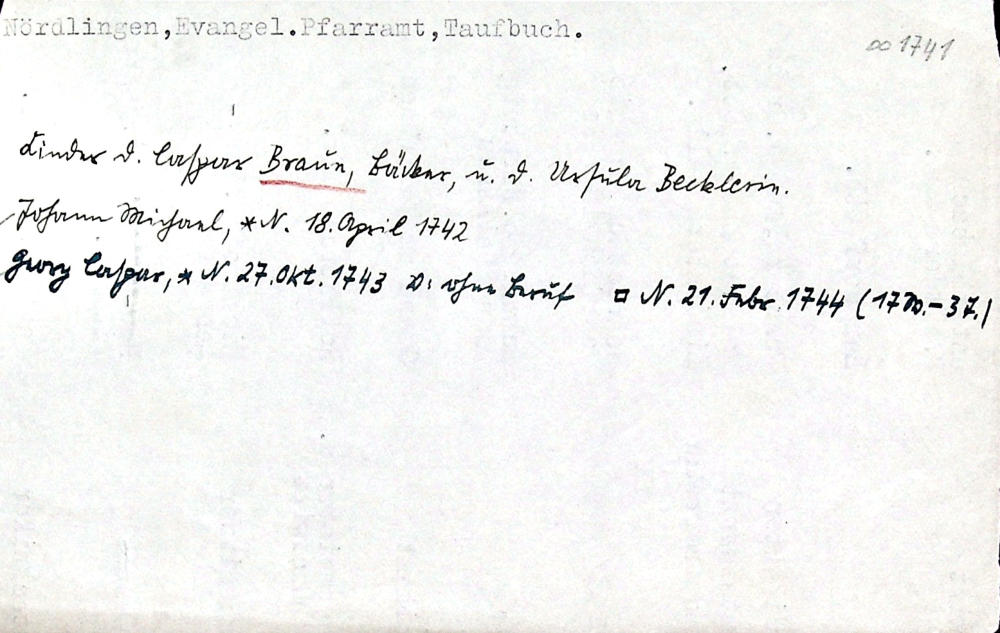 Nördlingen,Evangel.Pfarramt,Taufbuch.
∞ 1741
Kinder d. Caspar Braun, Bäcker, u. d. Ursula Becklerin.
Johann Michael, * N. 18. April 1742
Georg Caspar, * N. 27. Okt. 1743 V: ohne Beruf □ N. 21. Febr. 1744 (17 W.-3T.)